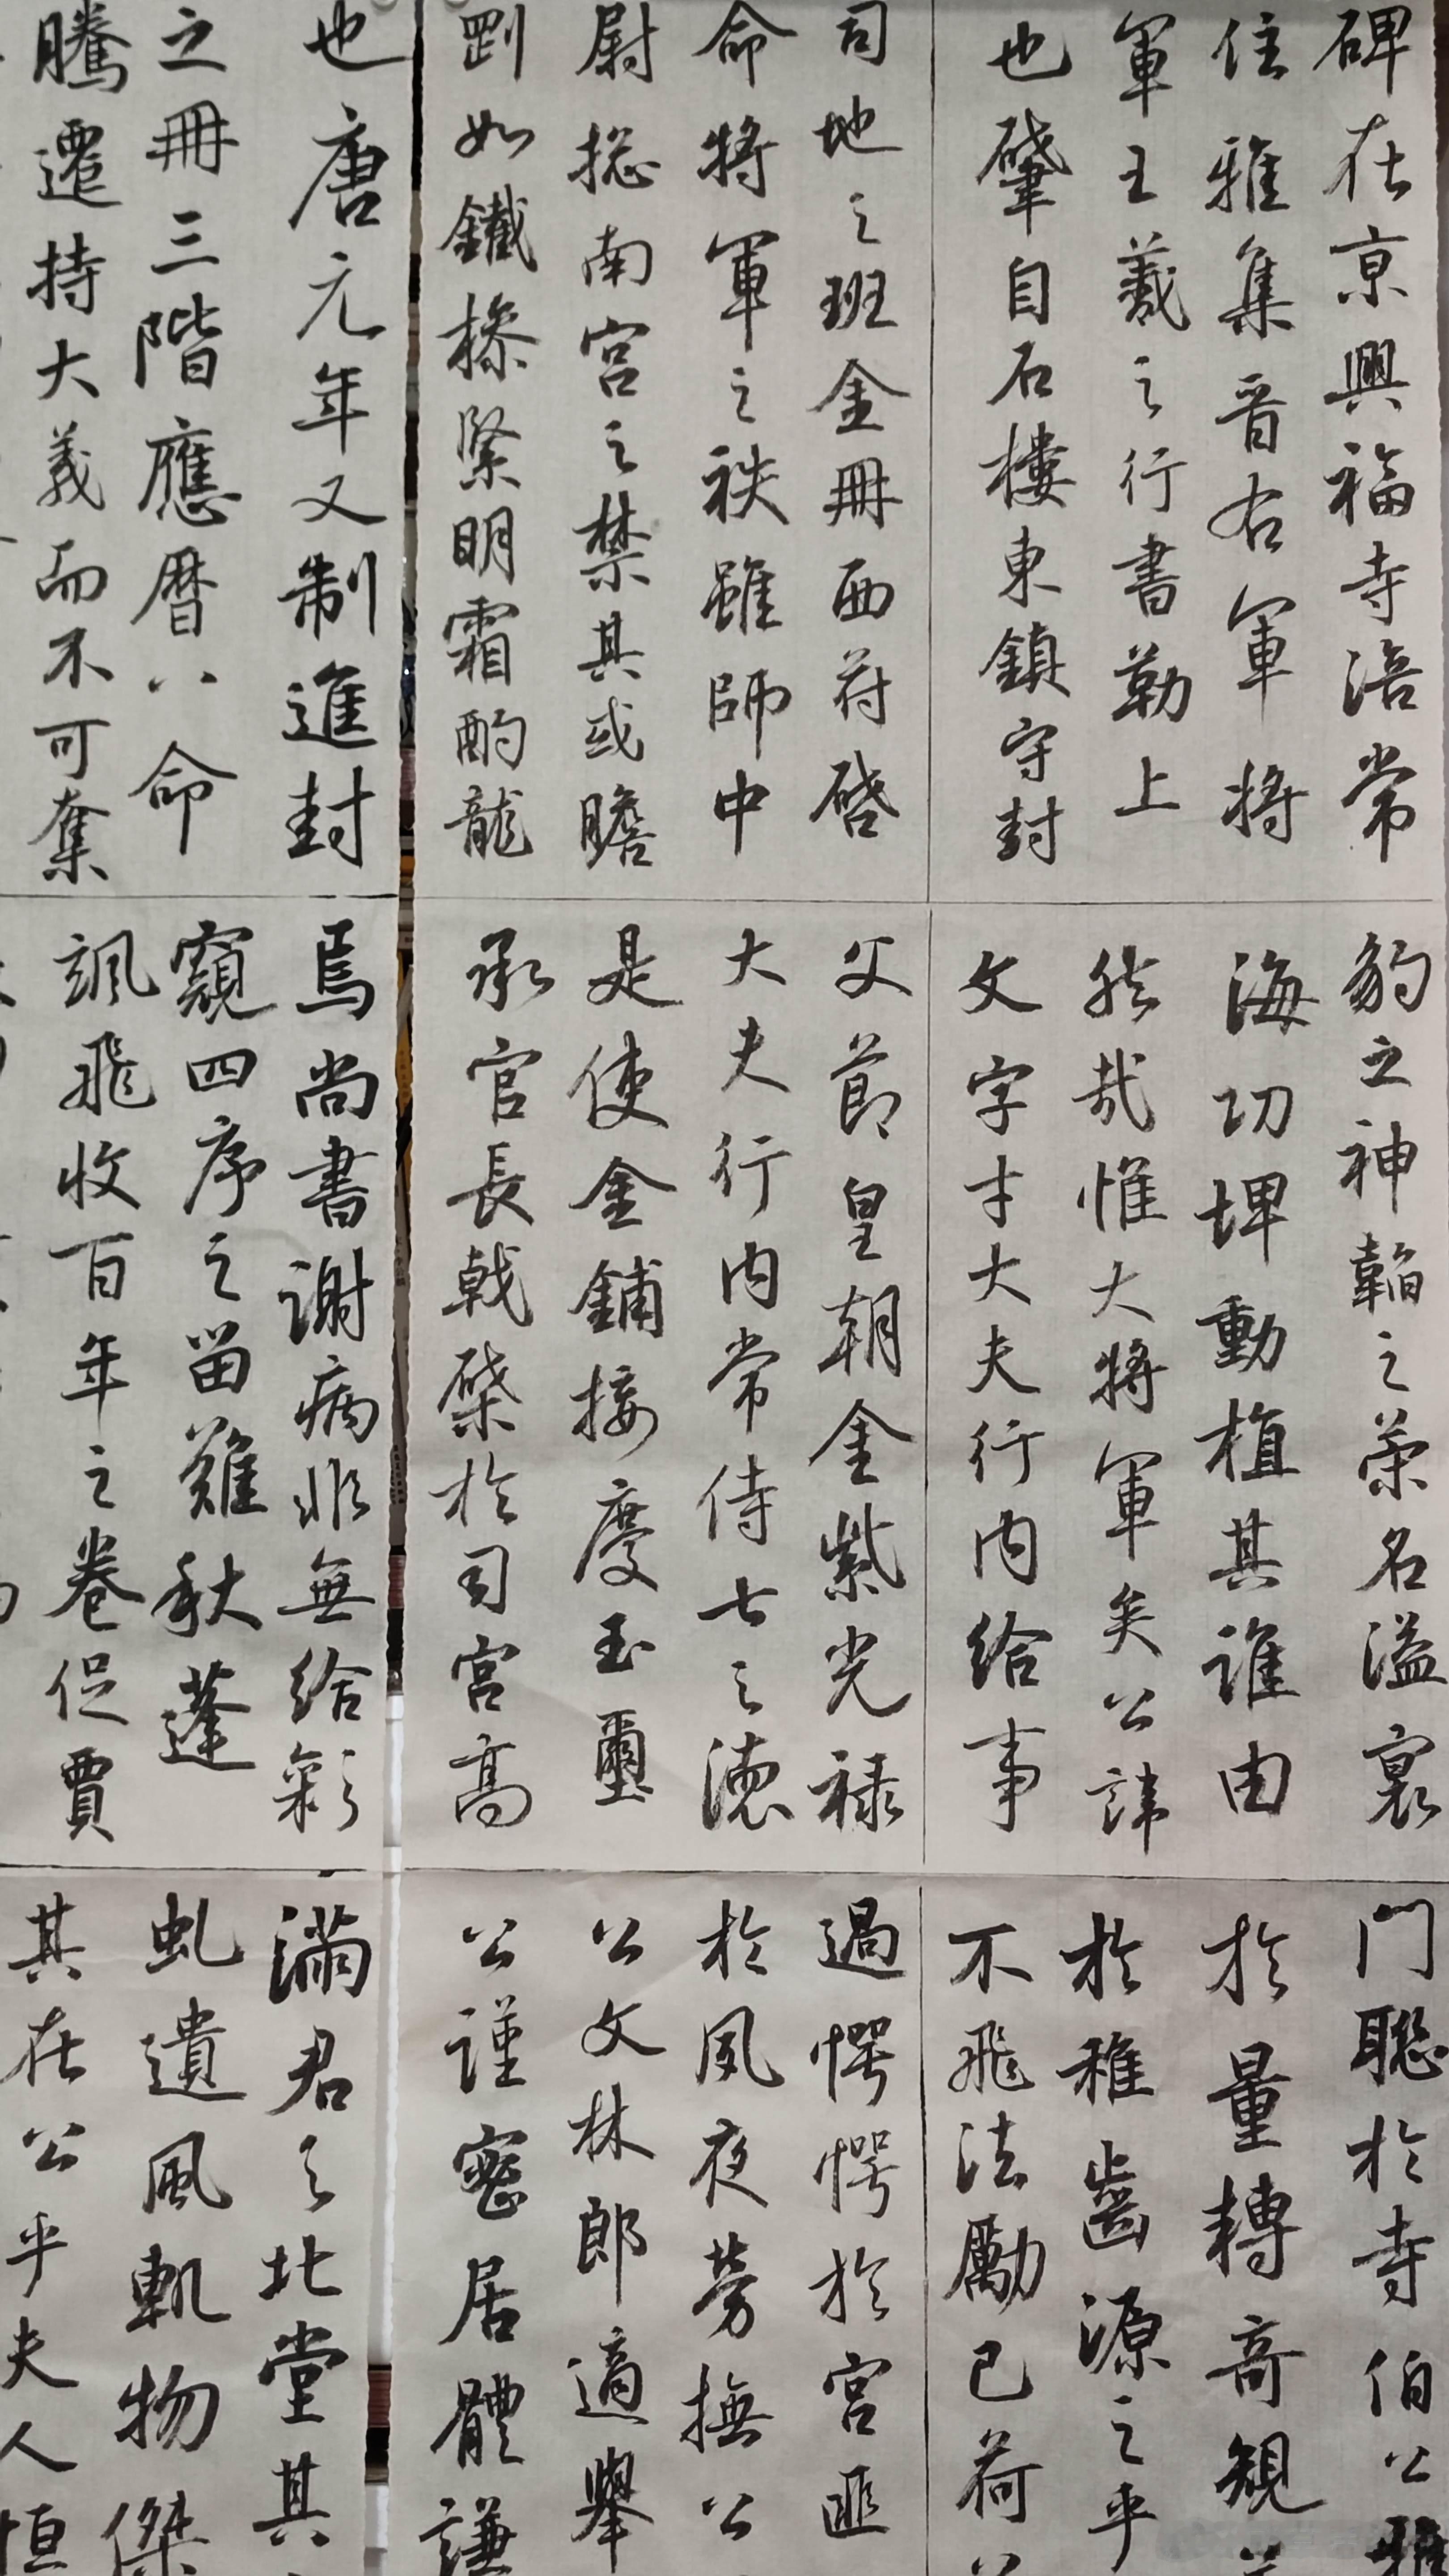 碑在京興福寺涪常
住雅集晋右軍將
軍王羲之行書勒上
也肇自石樓東鎮守封
司地之班金冊西苻啓
命將軍之秩雖師中
尉揔南宮之禁其或瞻
劉如鐵操緊明霜酌龍
也唐元年又制進封
之冊三階應曆八命
騰遷持大義而不可奪
豹之神韜之榮名溢寰
海功埤動植其誰由
然哉惟大將軍矣公諱
文字才大夫行内給事
父節皇朝金紫光禄
大夫行内常侍七之德
是使金鋪接慶玉璽
承官長戟槩於司宮高
焉尚書謝病非無給彩
窺四序之留難秋蓬
颯飛收百年之卷促賈
門聡於寺伯公雅
於量轉奇觀
於稚齒源之乎
不飛法勵己荷
過愕愕於宮匪
於夙夜勞撫公
公文林郎適舉
公謹密居體謙
滿君之北堂其
虬遺風軌物傑
其在公乎夫人恒